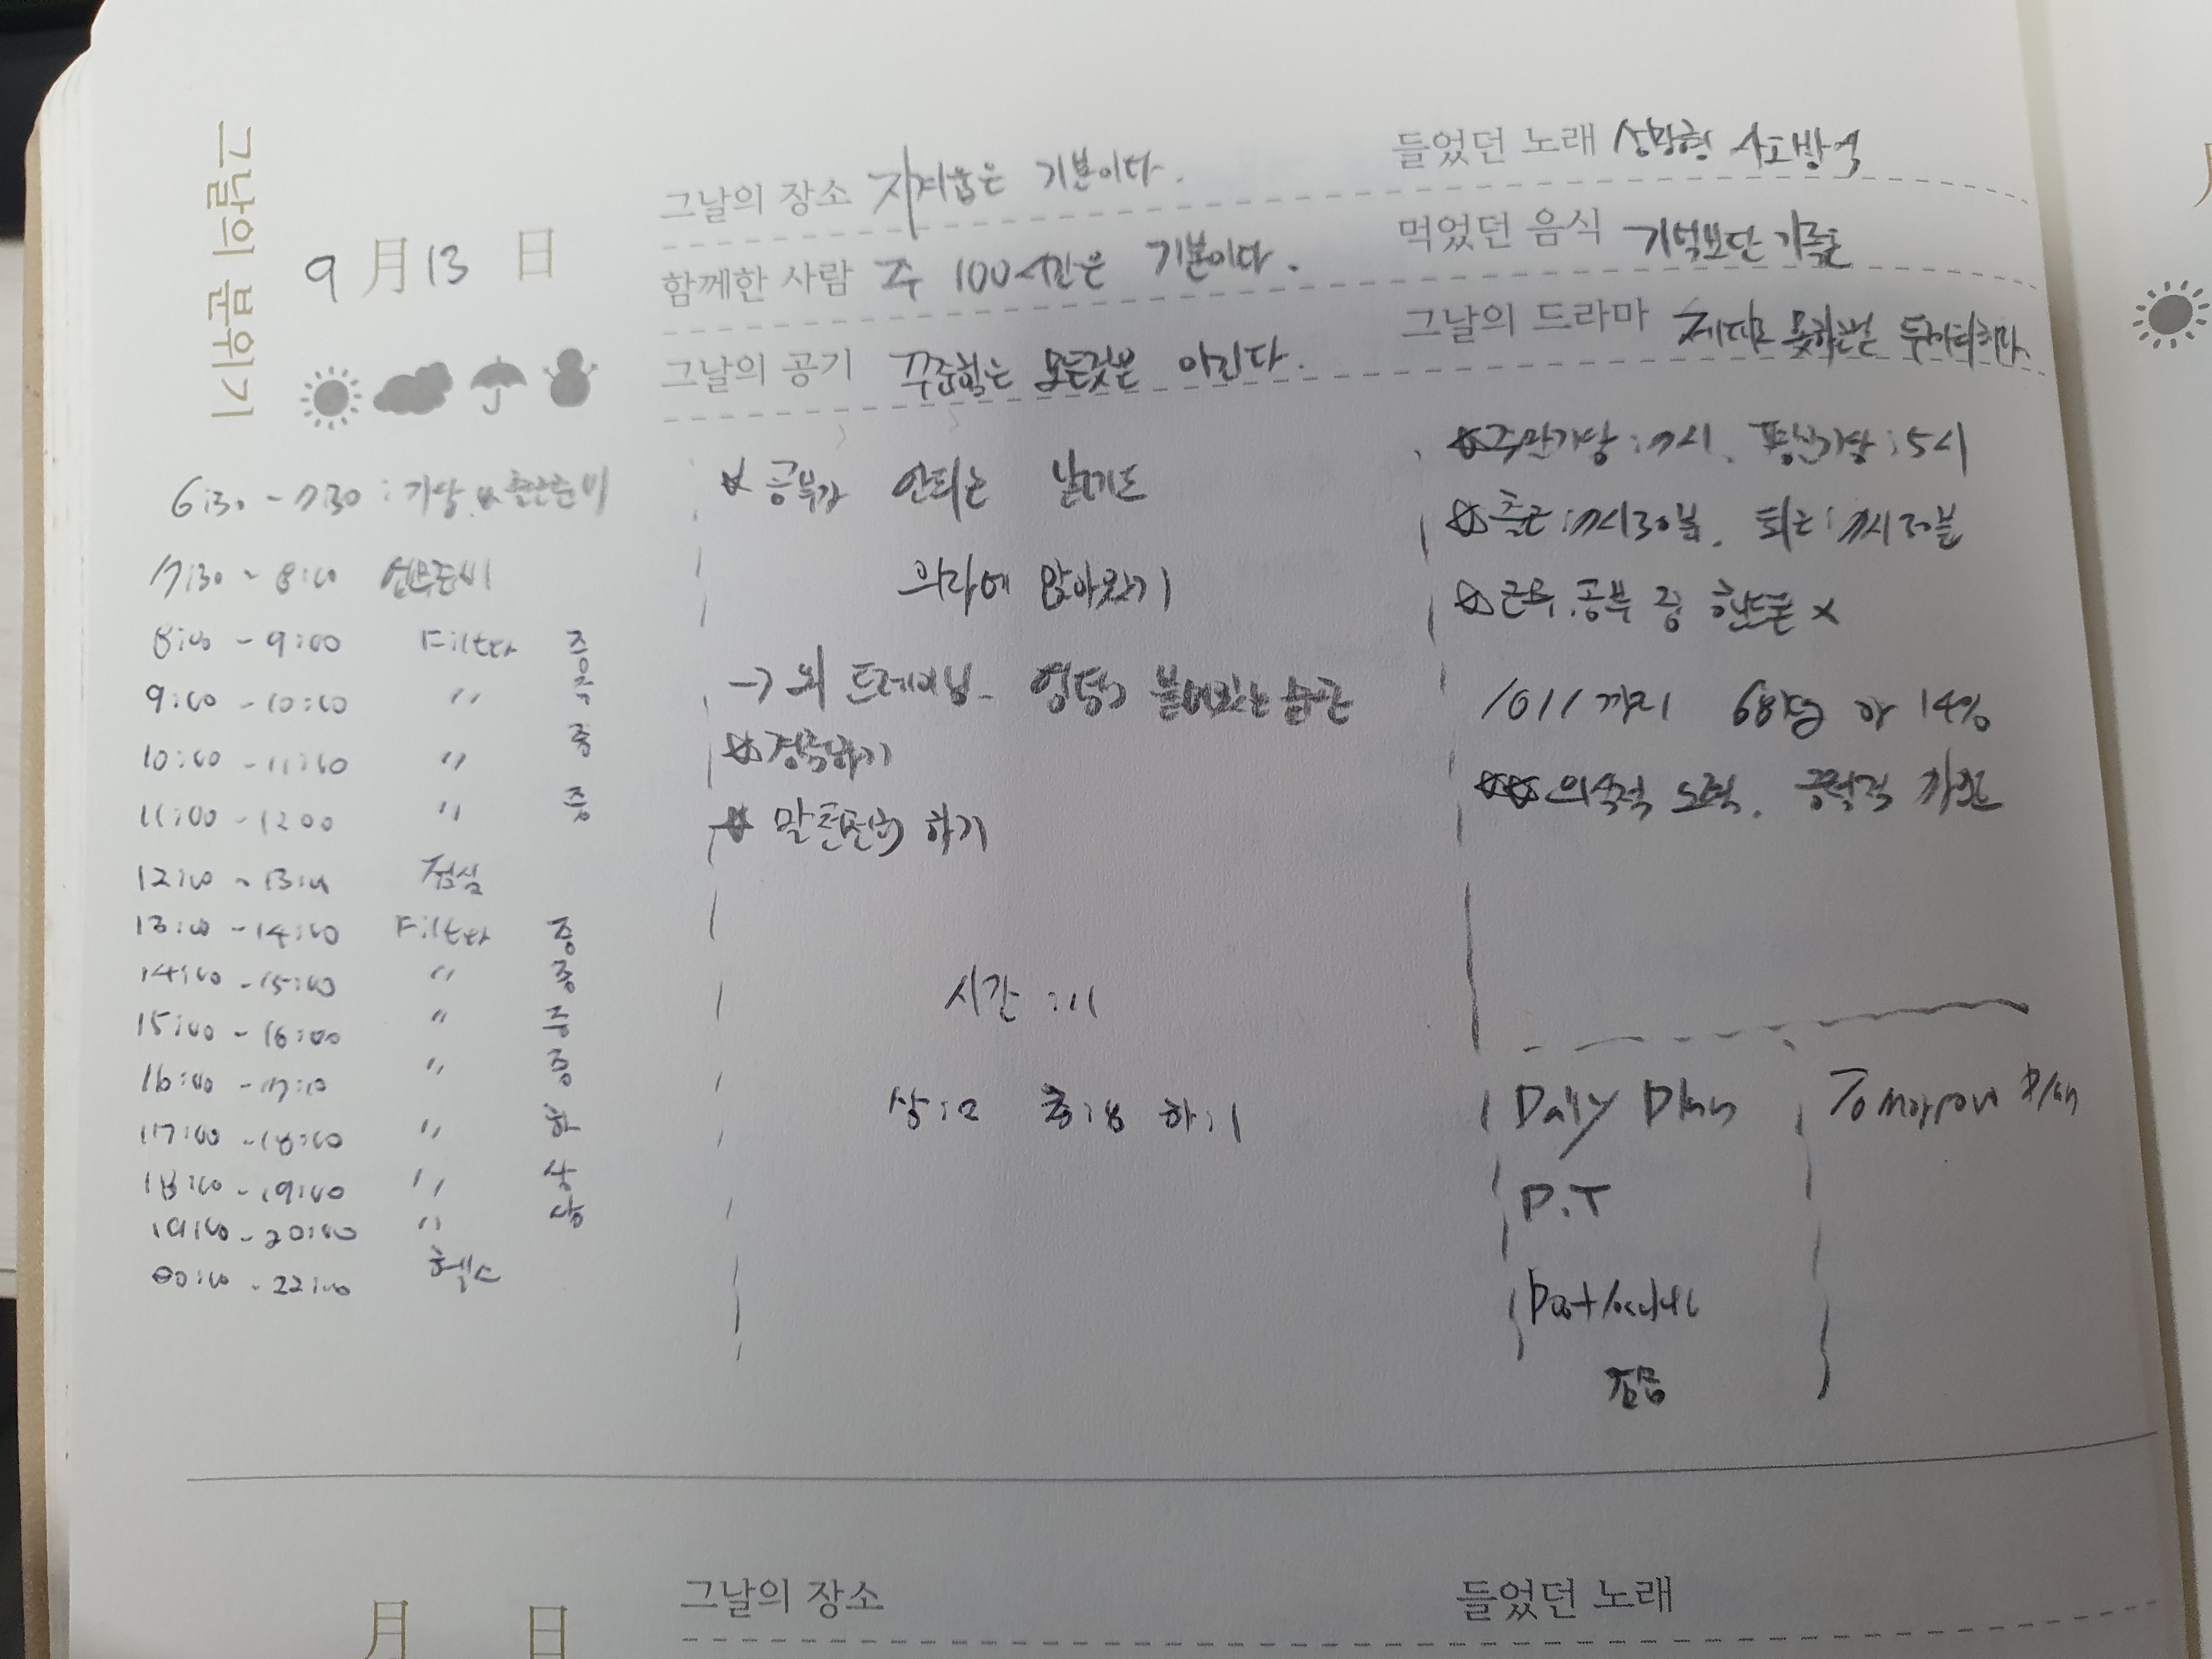 그날의 분위기
9 月 13 日
그날의 장소 지겨움은 기본이다.
함께한 사람 주 100시간은 기본이다.
그날의 공기 꾸준함은 모든것을 이긴다.
들었던 노래 성장형 사고방식
먹었던 음식 기억보단 기록을
그날의 드라마 제대로 못하는걸 두려워하라
6:30 - 7:30 : 기상 & 출근준비
7:30 ~ 8:00 업무준비
8:00 - 9:00 Filter 중
9:00 - 10:00 〃
10:00 - 11:00 〃 중
11:00 - 12:00 〃 중
12:00 ~ 13:00 점심
13:00 - 14:00 Filter 중
14:00 - 15:00 〃 중
15:00 - 16:00 〃 중
16:00 - 17:00 〃 중
17:00 - 18:00 〃 하
18:00 - 19:00 〃 상
19:00 - 20:00 〃 상
20:00 - 22:00 헬스
☆ 공부가 안되는 날에도
의자에 앉아있기
→ 뇌 트레이닝 - 엉덩이 붙어있는 습관
☆ 경청하기
☆ 말 천천히 하기
시간 : 11
상 : 2 중 : 8 하 : 1
☆ 주말기상 : 7시, 평일기상 : 5시
☆ 출근 : 7시30분, 퇴근 : 7시30분
☆ 근무, 공부 중 핸드폰 x
1011까지 68kg 14%
☆☆ 의식적 노력,
Daily Plan
P.T
집중
Tomorrow Plan
月 日
그날의 장소
들었던 노래